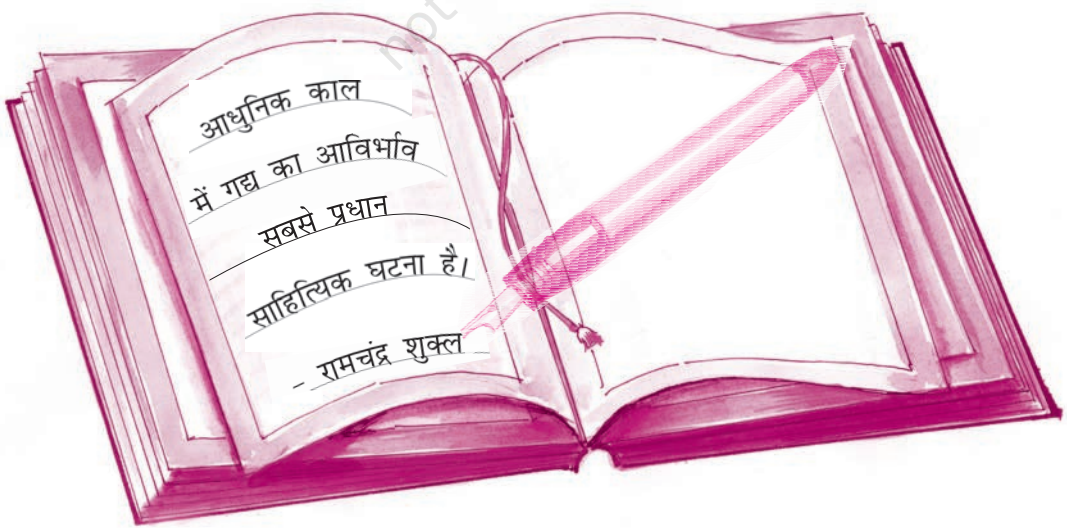 आधुनिक काल
में गद्य का आविर्भाव
सबसे प्रधान
साहित्यिक घटना है।
- रामचंद्र शुक्ल
not